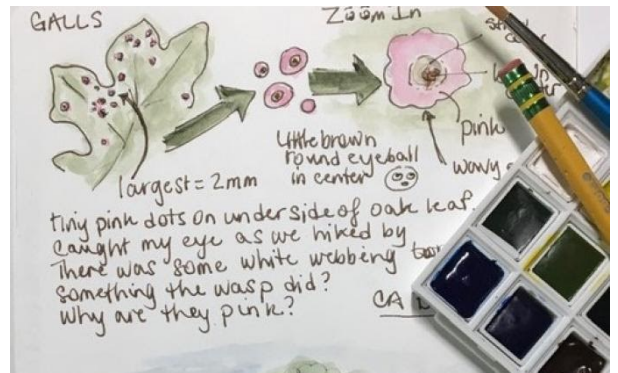 GALLS
Zoom In
pink
wavy
little brown
round eyeball
in center
largest = 2mm
tiny pink dots on underside of oak leaf
caught my eye as we hiked by
There was some white webbing too
something the wasp did?
why are they pink?
CA